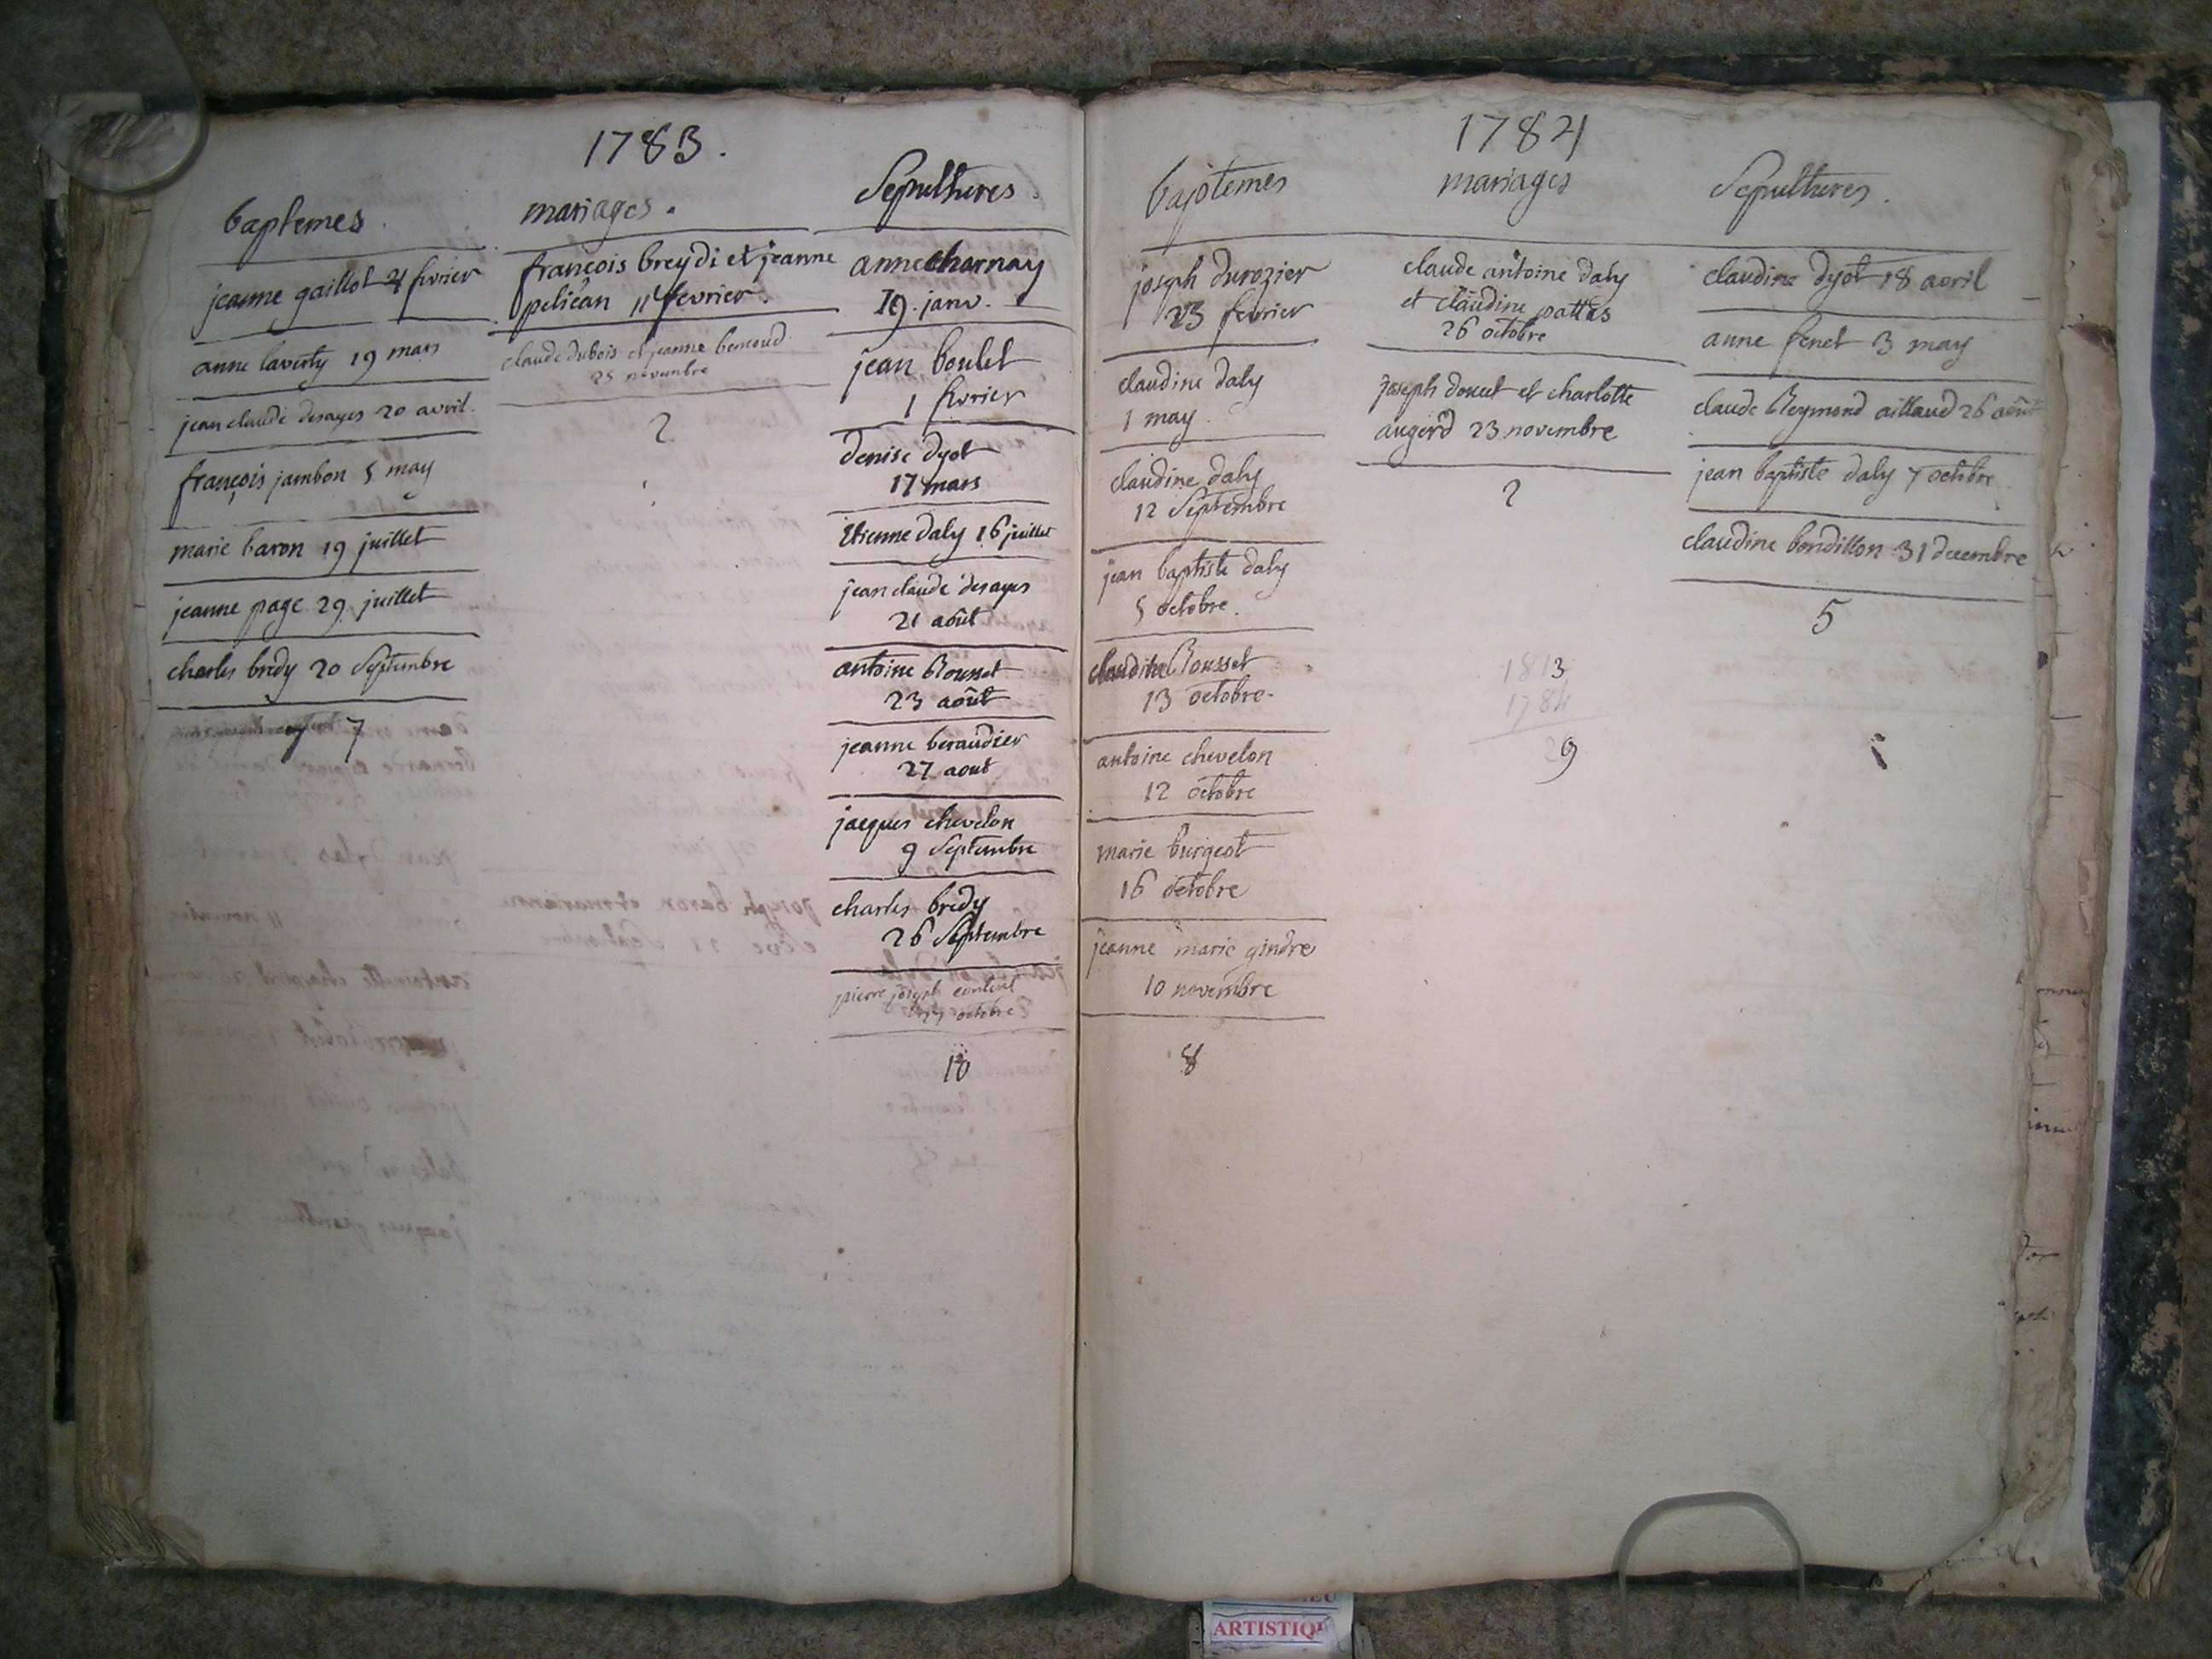 1783.
baptemes.
jeanne gaillot 4 fevrier
anne laverty 19 mars
jean claude desayes 20 avril.
françois jambon 5 may
marie baron 19 juillet
jeanne page 29 juillet
charles bredy 20 Septembre
7
mariages.
françois breydi et jeanne
pelican 11 fevrier.
claude dubois et jeanne bernoud
25 novembre
2
Sepultures.
anne charnay
19. janv.
jean boulet
1 fevrier
denise dyot
17 mars
Etienne daly 16 juillet
jean claude desayes
21 août
antoine Rousset
23 août
jeanne beraudier
27 aout
jacques chevelon
9 Septembre
charles bredy
26 Septembre
pierre joseph
octobre
10
1784
baptemes
joseph durozier
23 fevrier
claudine daly
1 may
claudine daly
12 Septembre
jean baptiste daly
5 octobre.
claudine Rousset
13 octobre
antoine chevelon
12 octobre
marie burgeot
16 octobre
jeanne marie gindre
10 novembre
8
mariages
claude antoine daly
et claudine pattas
26 octobre
joseph douet et charlotte
augerd 23 novembre
2
1813
1784
29
Sepultures.
claudine dyot 18 avril
anne fenet 3 may
claude Reymond aillaud 26 août
jean baptiste daly 7 octobre
claudine bondillon 31 decembre
5
ARTISTIQ